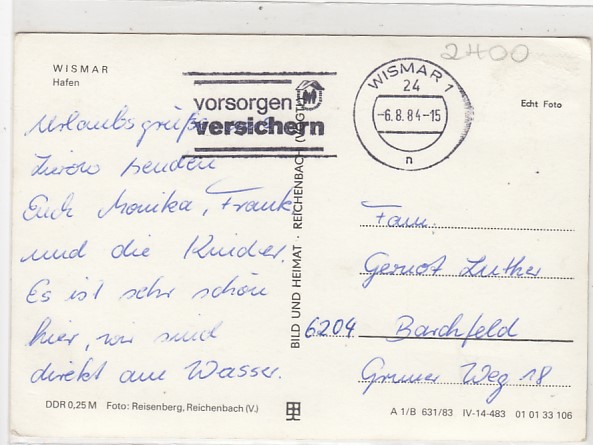 2400
WISMAR
Hafen
WISMAR 1
24
-6.8.84-15
n
vorsorgen
versichern
M
Echt Foto
Urlaubsgrüße aus
Zierow senden
Euch Monika, Frank
und die Kinder.
Es ist sehr schön
hier, wir sind
direkt am Wasser.
BILD UND HEIMAT · REICHENBACH (VOGTL)
Fam.
Gernot Luther
6204 Barchfeld
Grüner Weg 18
DDR 0,25 M Foto: Reisenberg, Reichenbach (V.)
A 1/B 631/83 IV-14-483 01 01 33 106